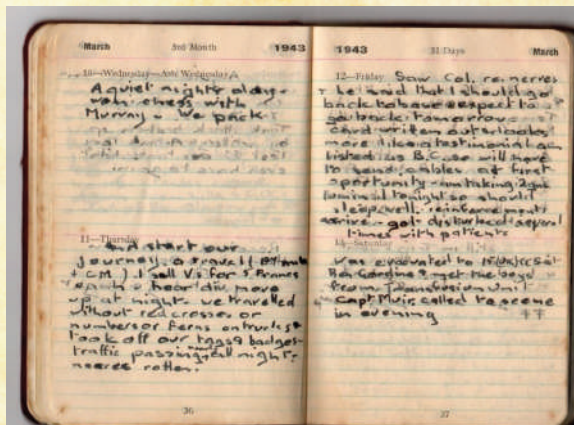 March 3rd Month 1943
10—Wednesday—Ash Wednesday
A quiet night & day -
won chess with
Murray. We pack
11—Thursday
and start our
journey. a travel (
+ CM). I sell V's for 5 Francs
each & hear div. move
up at night. we travelled
without red crosses or
numbers or ferns on trucks &
took off our tags & badges
traffic passing all night.
nerves rotten.
36
1943 31 Days March
12—Friday Saw Col. re. nerves
& he said that I should go
back to base expect to
go back tomorrow
card written out & looks
more like a testimonial am
listed as B.C. so will have
to send cables at first
oportunity - am taking 2 gns
luminal tonight so should
sleep well. reinforcements
arrive - got disturbed several
times with patients
13—Saturday
Was evacuated to
Ben Gardine & met the boys
from Transfusion Unit
Capt Muir called to see me
in evening
37